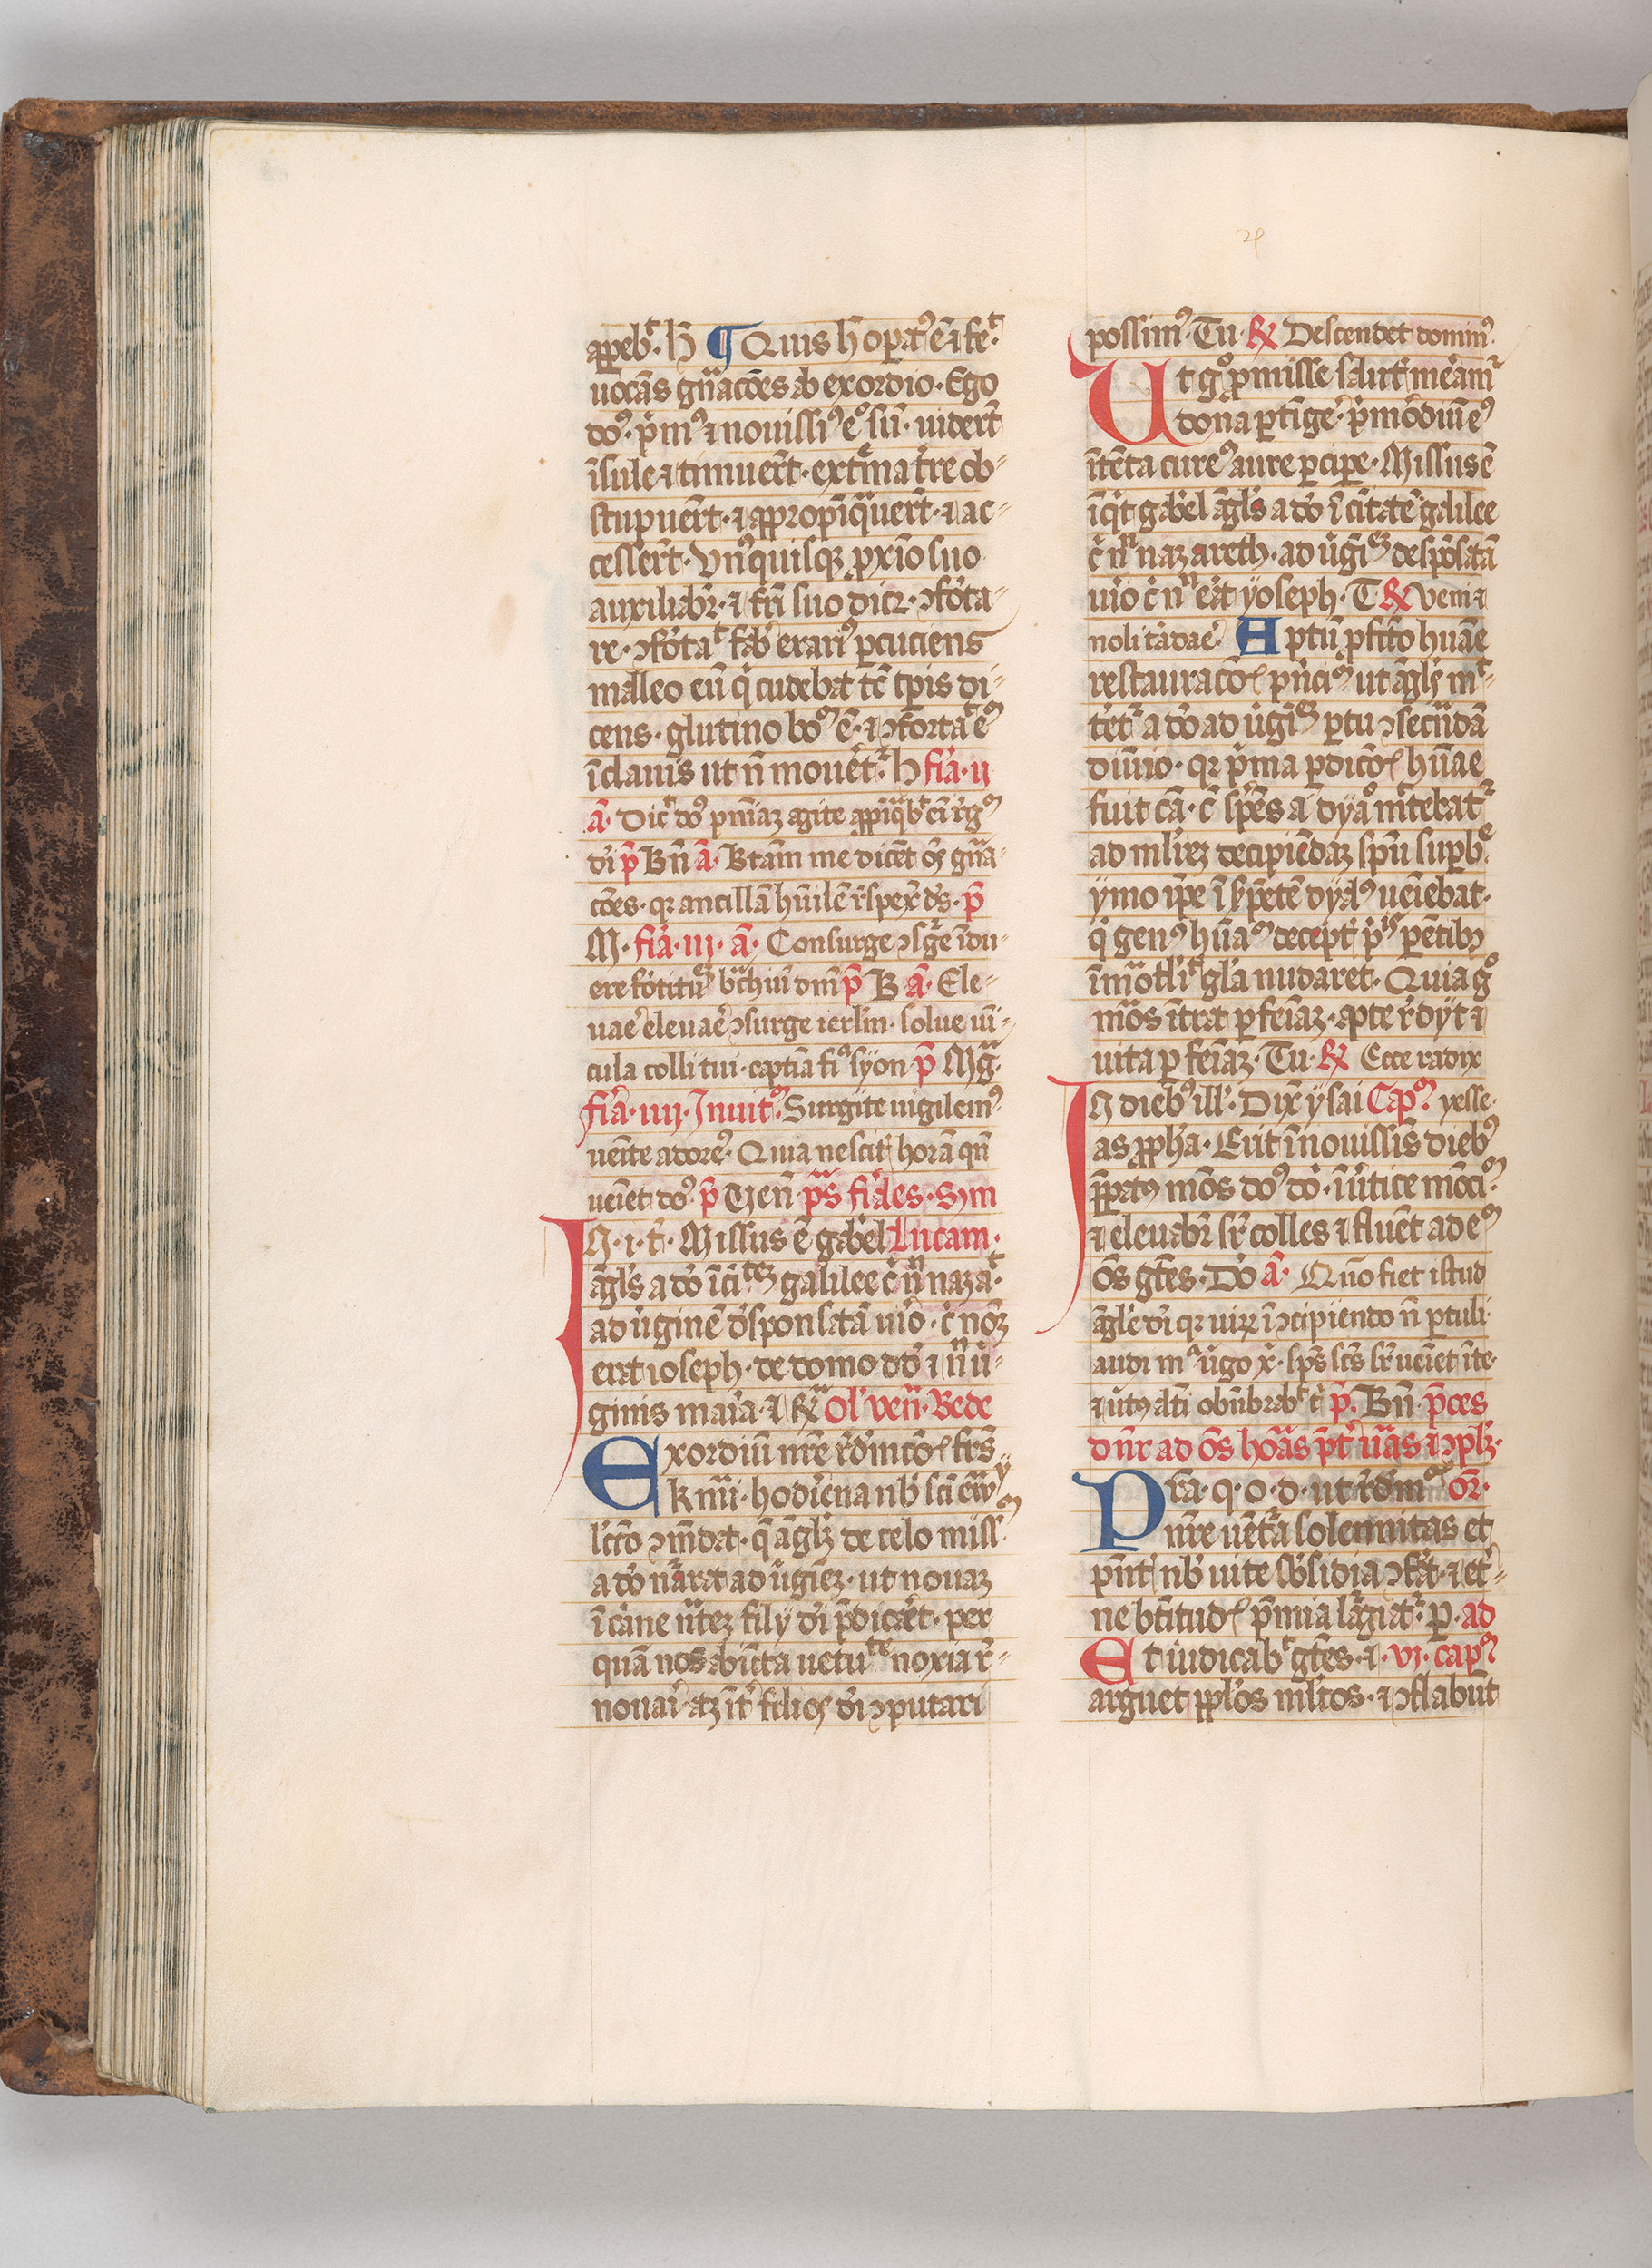 appeb̄t· h̄ ¶ Quis h̄ opat᷒ ē ⁊ fec̄
uocās gn̄acōes ab exordio· Ego
dō· p̄m᷒ ⁊ nouissi᷒ eº sū· uider̄t
īsule ⁊ timuer̄t· extᵉma tr̄e ob-
stupuer̄t· ⁊ appropīquer̄t· ⁊ ac-
cesser̄t· Vn᷒quisqꝫ ꝓxīo suo
auxiliabr̄· ⁊ fr̄i suo dicꝫ· ↄfor̄ta-
re· ↄfor̄tat fab̄ erari᷒ ꝑcuciens
malleo eū q̇ cudebat tc̄ tp̄is di-
cens· glutino boᵐ ē· ⁊ ↄfortaᵗ eᵐ
ī clauis ut n̄ mouet̄ᵣ· h fīa· ij
ā· Dic̄ dō pn̄iaꝫ agite appīqb̄t eī rgᵐ
dī p̄ Bn̄ ā· Btām me dicēt oēs gn̄a-
cōes· qꝛ ancillā hūilē rspex̄ ds̄· p̄
M· fīa· iij· ā· Consurge ↄsge īdu-
ere for̄titu᷒ brachiū dnī p̄ B ā· Ele-
uae᷒ eleuae᷒ ↄsurge ierl̄m· solue uī-
cula colli tui· captīa fi̾ syon p̄ Mg̅·
fīa· iiij· Inuitᵐ· Surgite uigilem᷒·
uenīte adore᷒· Quia nescit᷒ horā qn̄
ueīet dō᷒ p̄ Tꝫen̄ p̄s fīales· Sꝫm
In· i· t̄· Missus ē gab̄el Lucam·
āgls̄ a dō ī ciᵗᵉꝫ galilee c̄ nⁿ nazaᵗ·
ad ūginē dsponsatā uīo· c̄ nōꝫ
erat ioseph· de domo dd̄· ⁊ nⁿ ū-
ginis maīa· ⁊ rlᵃ Ol̄ ven· Bede
Exordiū nr̄e rdēptōis frs̄
km̄i· hodīena nb̄ sc̄i ewᵐ
lcō ↄmēdat· q̄ āglꝫ de celo missᵐ
a dō nārat ad ūginēꝫ· ut nouaꝫ
ī cāne n̄tꝫ filij dī p̄dicaret· per
quā nos abiecta uetuᵗᵉ noxia r-
nouaī atꝫ īt᷒ filios dī ↄputari
possim᷒· Tu· ℞ Descendet domin᷒·
Ut gº ꝓmisse saluti᷒ meam̄ᵣ
dona ꝑtīge᷒· p̄mōdiū e᷒
ītēta cure᷒ aure ꝑcipe· Missus ē
īqt gab̄el āgls̄ a dō ī citatē galilee
c̄ nⁿ nazareth· ad ūgiᵉᵐ despōsatā
uīo c̄ nⁿ erat yoseph· T ℞ Veni ⁊
noli tādae᷒ Aptū ꝓfcō huāe
restauracōis pn̄ciᵐ ut āglꝫ mᵗ-
teēᵣ a dō ad ūgiᵉᵐ ꝑtu ↄsecrādā
diuīo· qꝛ p̄ma ꝑdicōis hūae
fuit cā· c̄ sp̄ēs a dyaº m̄tebatᵣ
ad ml̄iꝫ decipiēdaꝫ spū supb̄ᵉ
ymo ip̄e ī spētē dyab᷒ ueīebat·
q̇ gen᷒ hūaᵐ decept᷒ p̄ˢ pēntibꝫ
īmortlitᵗ gl̄a nudaret· Quia gº
mōs ītrat ꝑ feīaꝫ· apte rdyt ⁊
uita ꝑ feīaꝫ· Tu· ℞ Ecce radix
In dieb᷒ ill̄· Dix̄ ysai Capᵐ yesse·
as ppha· Erit ī nouissis dieb᷒
p̄patus mōs dō᷒ dō· ī ūtice mōciᵐ
⁊ eleuabr̄ sr̄ colles ⁊ fluēt ad eᵐ
ōs gtēs· Dō ā· Qūo fiet istud
āgle dī qꝛ uiꝝ ī ↄcipiendo n̄ ꝑtuli·
audi mᵃ ūgo x̄· sp̄s scs̄ sr̄ ueīet ī te·
⁊ ūtus alti᷒ obūbrab̄t t̄ p̄ Bn̄· p̄ces
dn̄r ad ōs hoās p̄t᷒ ūas ⁊ ↄplꝫ·
Pr̄a· q· o· d· ut rdēm̄ᵒⁱˢ or̄·
nr̄e uētᵃ solennitas et
pn̄t᷒ nb̄ uite sb̄sidia ↄfāt· ⁊ et-
ne bt̄itudis p̄mia lagiatᵣ· ꝑ· ad
Et iudicab̄t gtēs· ⁊· vj· capᵐ
arguet pplōs ml̄tos· ⁊ ↄflabūt